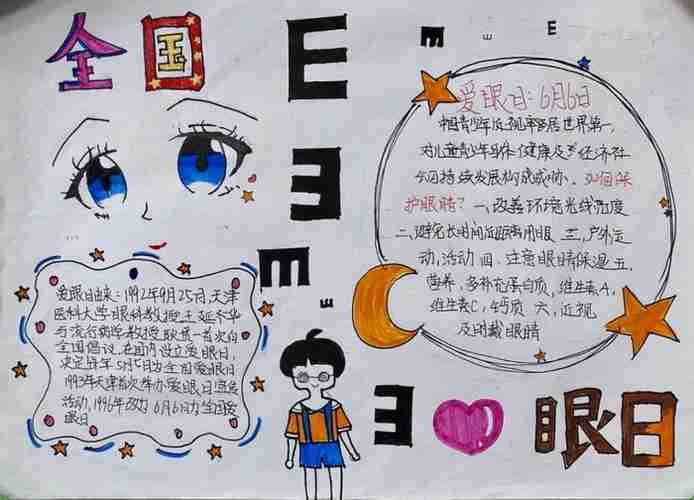 全国
E
E
E
E
E
E
E
E
爱眼日：6月6日
中国青少年近视率居世界第一，
对儿童青少年身体健康及经济社
会可持续发展构成威胁。如何保
护眼睛？一、改善环境光线亮度
二、避免长时间近距离用眼 三、户外运
动，活动 四、注意眼睛保湿 五、
营养，多补充蛋白质，维生素A，
维生素C，钙质 六、近视
及时戴眼睛
爱眼日由来：1992年9月25日，天津
医科大学眼科教授王延华
与流行病学教授耿贯一首次向
全国倡议，在国内设立爱眼日，
决定每年5月5日为全国爱眼日
1993年天津首次举办爱眼日宣传
活动，1996年改为6月6日为全国爱
眼日
眼日